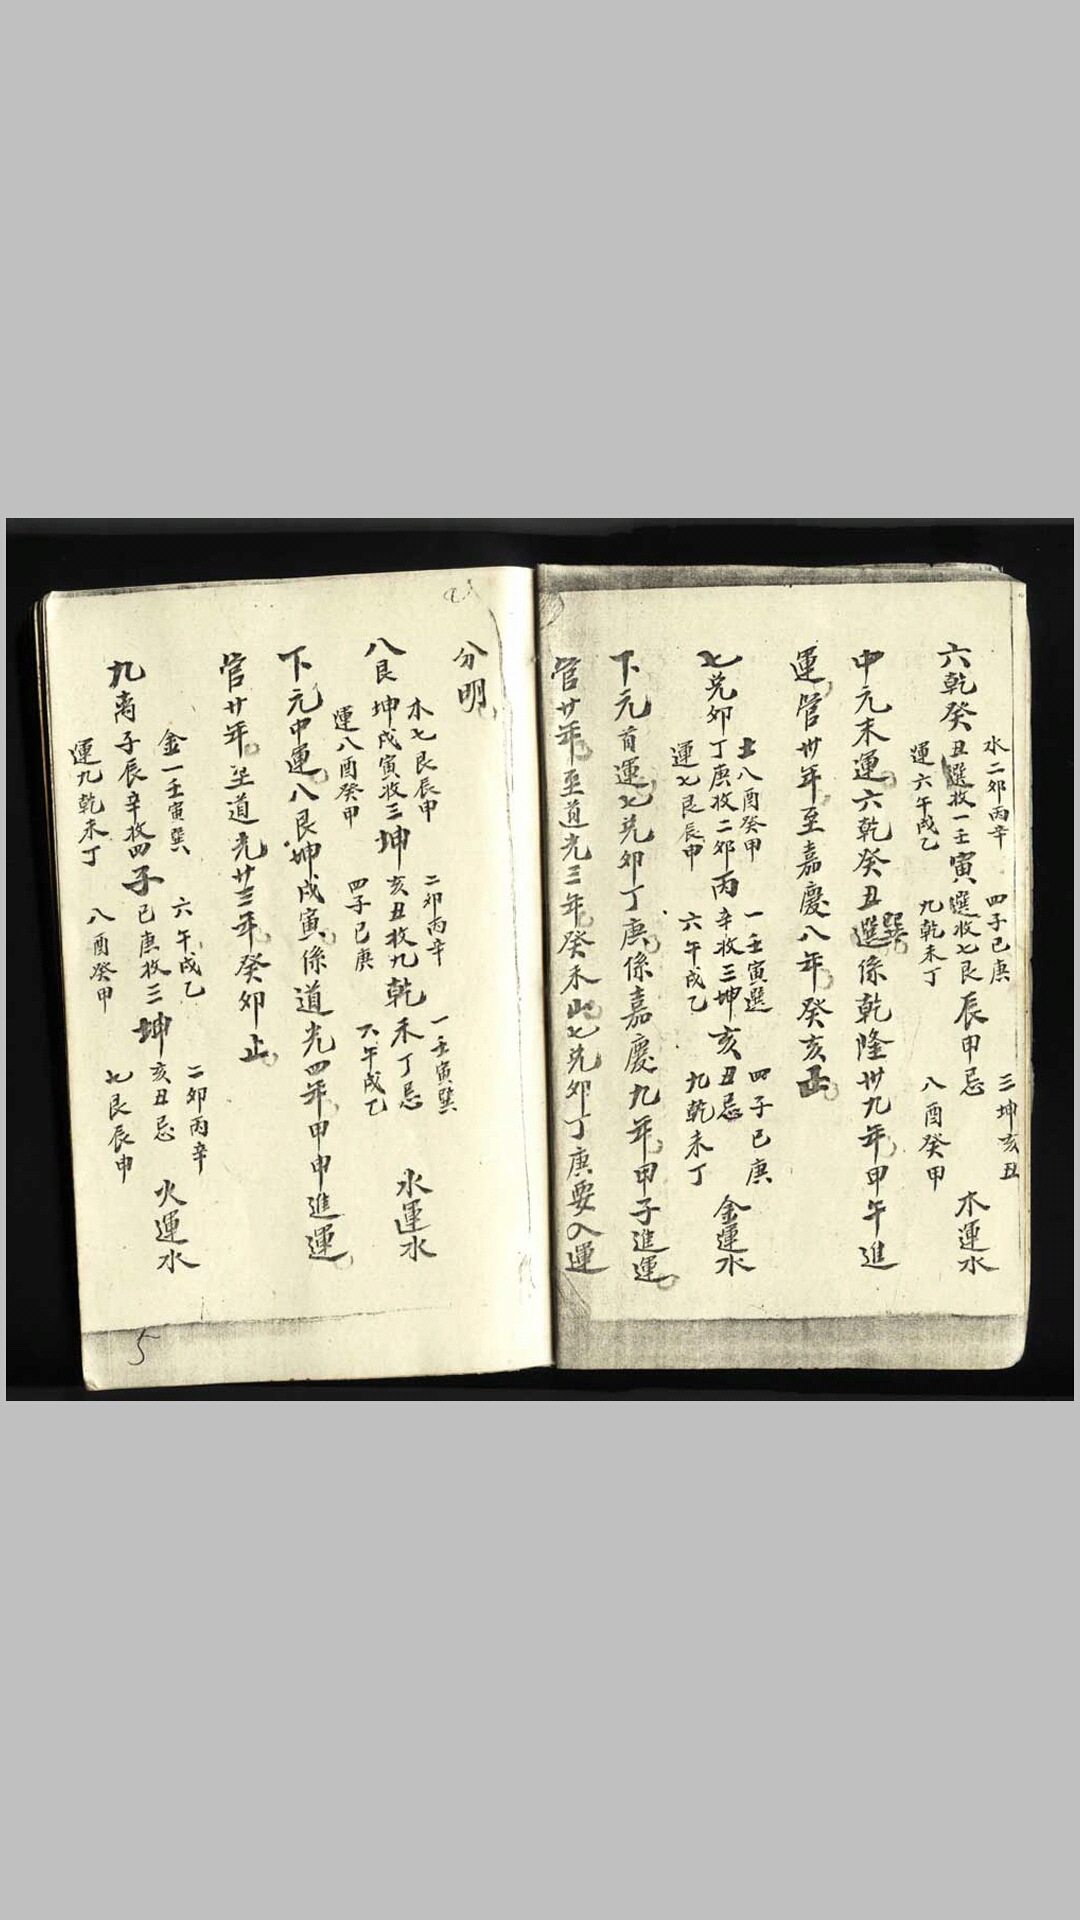 水二卯丙辛　四子巳庚　三坤亥丑
六乾癸丑選收一壬寅選收七艮辰甲忌　木運水
運六午戌乙　九乾未丁　八酉癸甲
中元末運六乾癸丑巽係乾隆卅九年甲午進
運管卅年至嘉慶八年癸亥止
土八酉癸甲　一壬寅選　四子巳庚
七兌卯丁庚收二卯丙辛收三坤亥丑忌　金運水
運七艮辰申　六午戌乙　九乾未丁
下元首運七兌卯丁庚係嘉慶九年甲子進運
管廿年至道光三年癸未止七兌卯丁庚要入運
分明
木七艮辰甲　二卯丙辛　一壬寅巽
八艮坤戌寅收三坤亥丑收九乾未丁忌　水運水
運八酉癸甲　四子巳庚　六午戌乙
下元中運八艮坤戌寅係道光四年甲申進運
管廿年至道光廿三年癸卯止
金一壬寅巽　六午戌乙　二卯丙辛
九离子辰辛收四子巳庚收三坤亥丑忌　火運水
運九乾未丁　八酉癸甲　七艮辰申
5